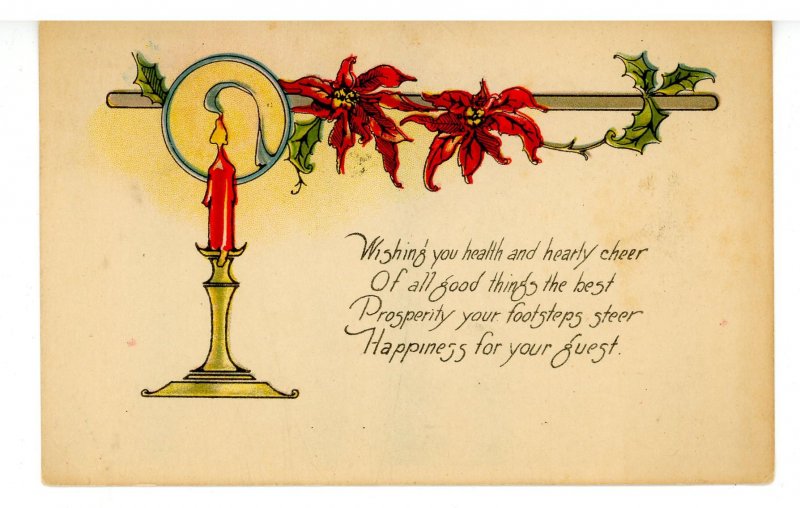 Wishing you health and hearty cheer
Of all good things the best
Prosperity your footsteps steer
Happiness for your guest.